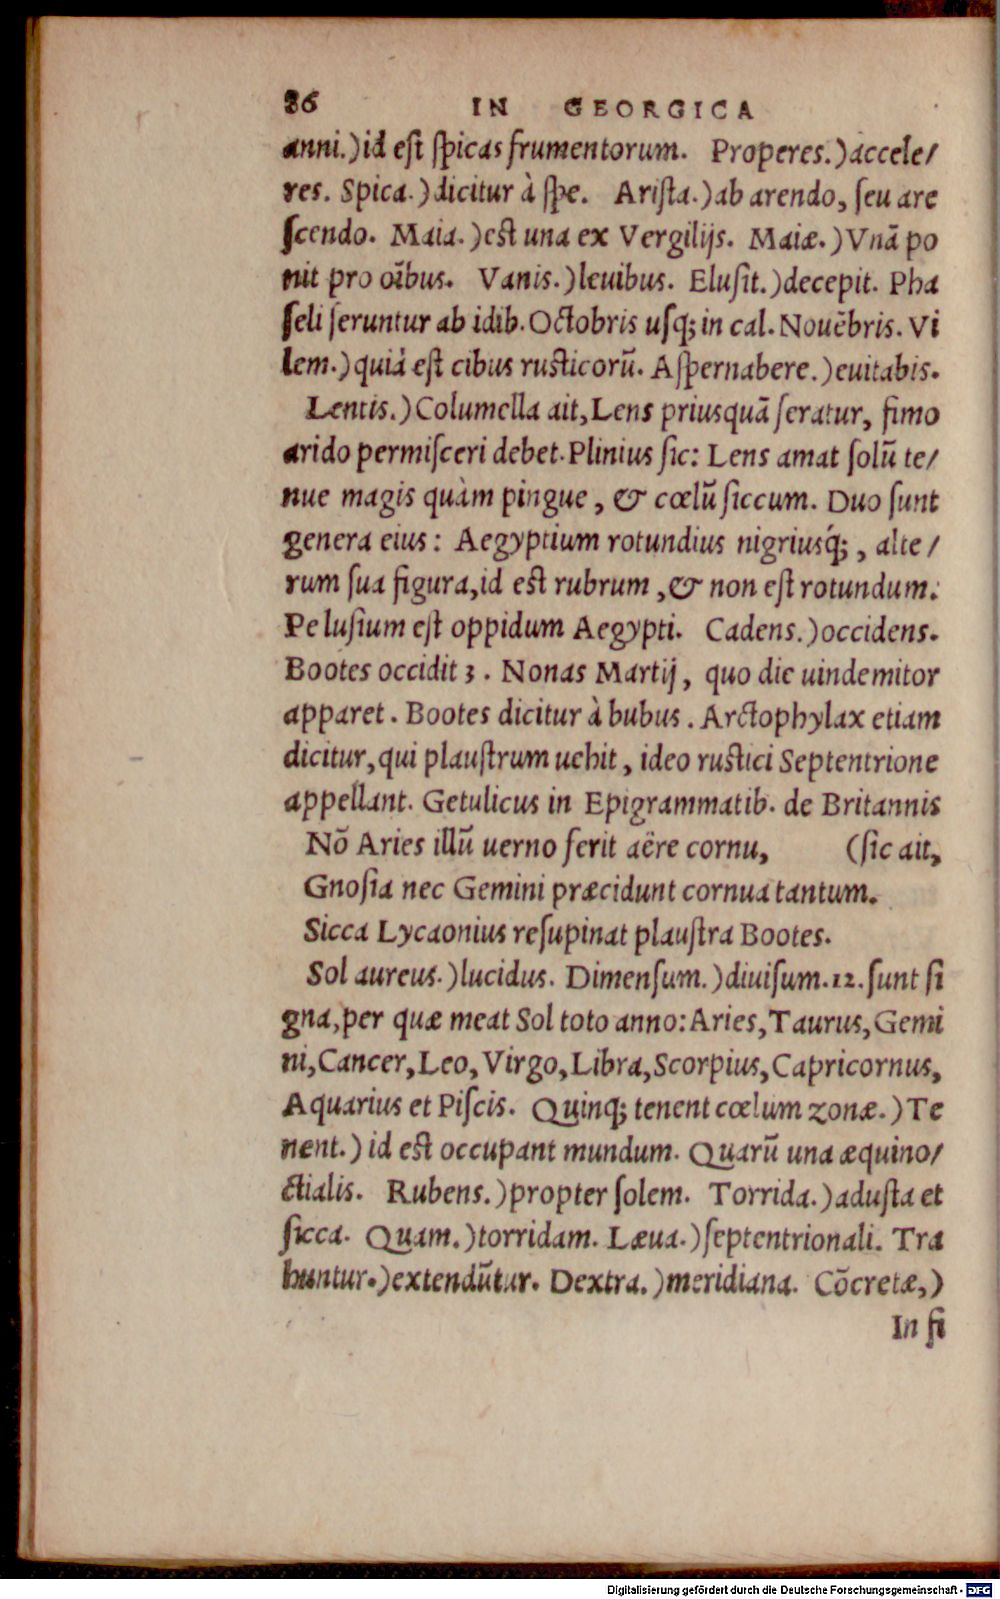 86 IN GEORGICA
anni.) id eſt ſpicas frumentorum. Properes.) accele/
res. Spica.) dicitur à ſpe. Ariſta.) ab arendo, ſeu are
ſcendo. Maia.) eſt una ex Vergilijs. Maiæ.) Vnā po
nit pro oībus. Vanis.) leuibus. Eluſit.) decepit. Pha
ſeli ſeruntur ab idib. Octobris uſq; in cal. Nouēbris. Vi
lem.) quià eſt cibus ruſticorū. Aſpernabere.) euitabis.
Lentis.) Columella ait, Lens priusquā ſeratur, fimo
arido permiſceri debet. Plinius ſic: Lens amat ſolū te/
nue magis quàm pingue, & cœlū ſiccum. Duo ſunt
genera eius: Aegyptium rotundius nigriusq́;, alte/
rum ſua figura, id eſt rubrum, & non eſt rotundum.
Peluſium eſt oppidum Aegypti. Cadens.) occidens.
Bootes occidit 3. Nonas Martij, quo die uindemitor
apparet. Bootes dicitur à bubus. Arctophylax etiam
dicitur, qui plauſtrum uehit, ideo ruſtici Septentrione
appellant. Getulicus in Epigrammatib. de Britannis
Nō Aries illū uerno ferit aëre cornu, (ſic ait,
Gnoſia nec Gemini præcidunt cornua tantum.
Sicca Lycaonius reſupinat plauſtra Bootes.
Sol aureus.) lucidus. Dimenſum.) diuiſum. 12. ſunt ſi
gna, per quæ meat Sol toto anno: Aries, Taurus, Gemi
ni, Cancer, Leo, Virgo, Libra, Scorpius, Capricornus,
Aquarius et Piſcis. Quinq; tenent cœlum zonæ.) Te
nent.) id eſt occupant mundum. Quarū una æquino/
ctialis. Rubens.) propter ſolem. Torrida.) aduſta et
ſicca. Quam.) torridam. Læua.) ſeptentrionali. Tra
huntur.) extendūtur. Dextra.) meridiana. Cōcretæ,)
In ſi
Digitalisierung gefördert durch die Deutsche Forschungsgemeinschaft - DFG